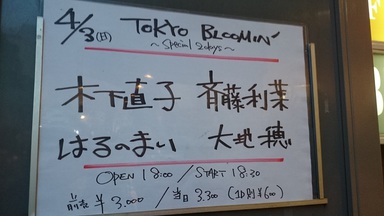 4/3(日) TOKYO BLOOMIN'
~Special 2days~
木下直子 斉藤利菜
はるのまい 大地穂
OPEN 18:00 / START 18:30
前売 ¥3,000 / 当日 3,300 (1D別¥600)